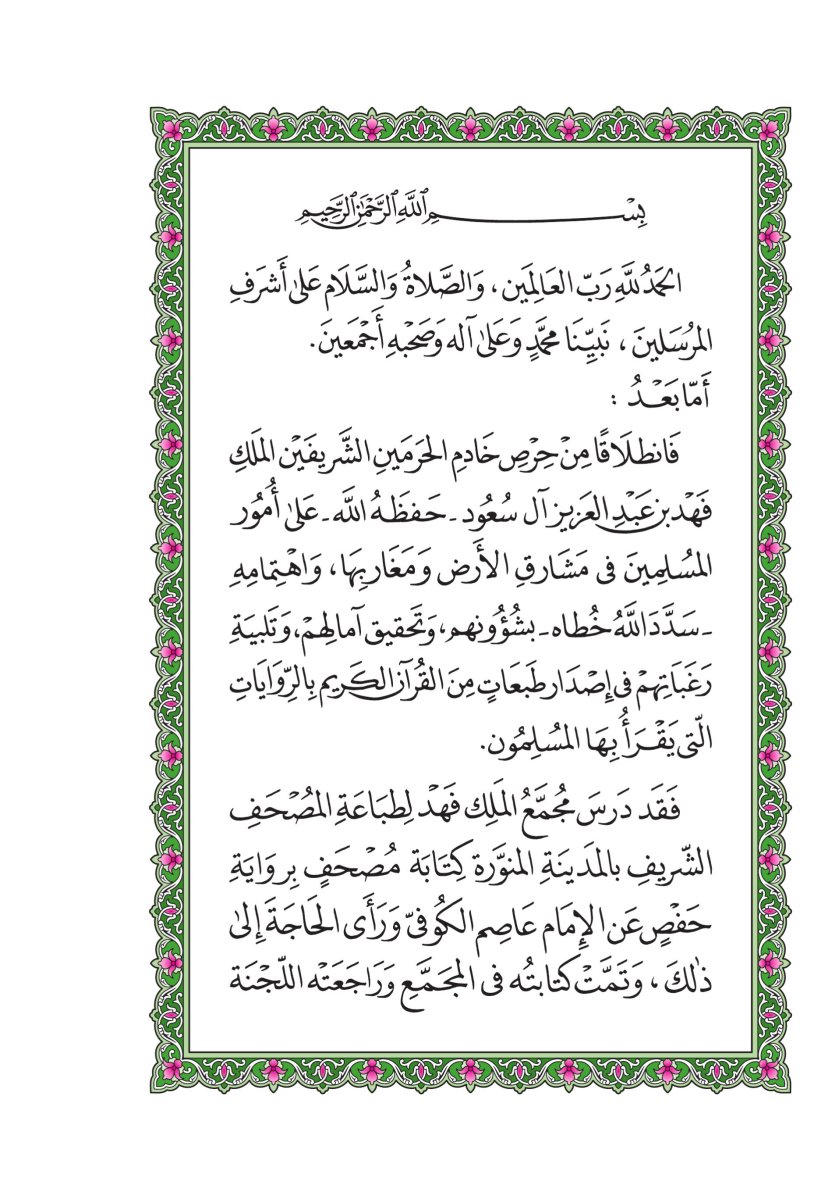 بِسْمِ ٱللَّهِ ٱلرَّحْمَٰنِ ٱلرَّحِيمِ
الحَمْدُ للَّهِ رَبِّ العَالَمِينَ، وَالصَّلَاةُ وَالسَّلَامُ عَلَىٰ أَشْرَفِ
المُرْسَلِينَ، نَبِيِّنَا مُحَمَّدٍ وَعَلَىٰ آلِهِ وَصَحْبِهِ أَجْمَعِينَ.
أَمَّا بَعْدُ :
فَانطلَاقًا مِنْ حِرْصِ خَادِمِ الحَرَمَينِ الشَّرِيفَيْنِ المَلَكِ
فَهْد بن عَبْدِ العَزِيزِ آل سُعُود ـ حَفَظَهُ اللَّه ـ عَلَىٰ أُمُورِ
المُسْلِمِينَ فى مَشَارقِ الأَرضِ وَمَغَاربِهَا، وَاهْتِمَامِهِ
ـ سَدَّدَ اللَّهُ خُطاه ـ بشُؤُونهم، وَتَحقيق آمَالِهمْ، وَتَلبيَةِ
رَغَبَاتِهمْ فى إِصْدَار طَبَعَاتٍ مِنَ القُرآن الكَريم بِالرِّوَايَاتِ
الّتى يَقْرَأُ بِهَا المُسْلِمُون.
فَقَد دَرَسَ مُجَمَّعُ المَلِك فَهْد لِطبَاعَةِ المُصْحَفِ
الشّريفِ بالمَدينَةِ المنوَّرة كِتَابَةَ مُصْحَفٍ برِوَايَةِ
حَفْصٍ عَن الإِمَام عَاصِم الكُوفىّ وَرَأَى الحَاجَةَ إِلىٰ
ذٰلكَ، وَتَمَّتْ كتابتُه فى المجَمَّعِ وَرَاجَعَتْه اللّجْنَة